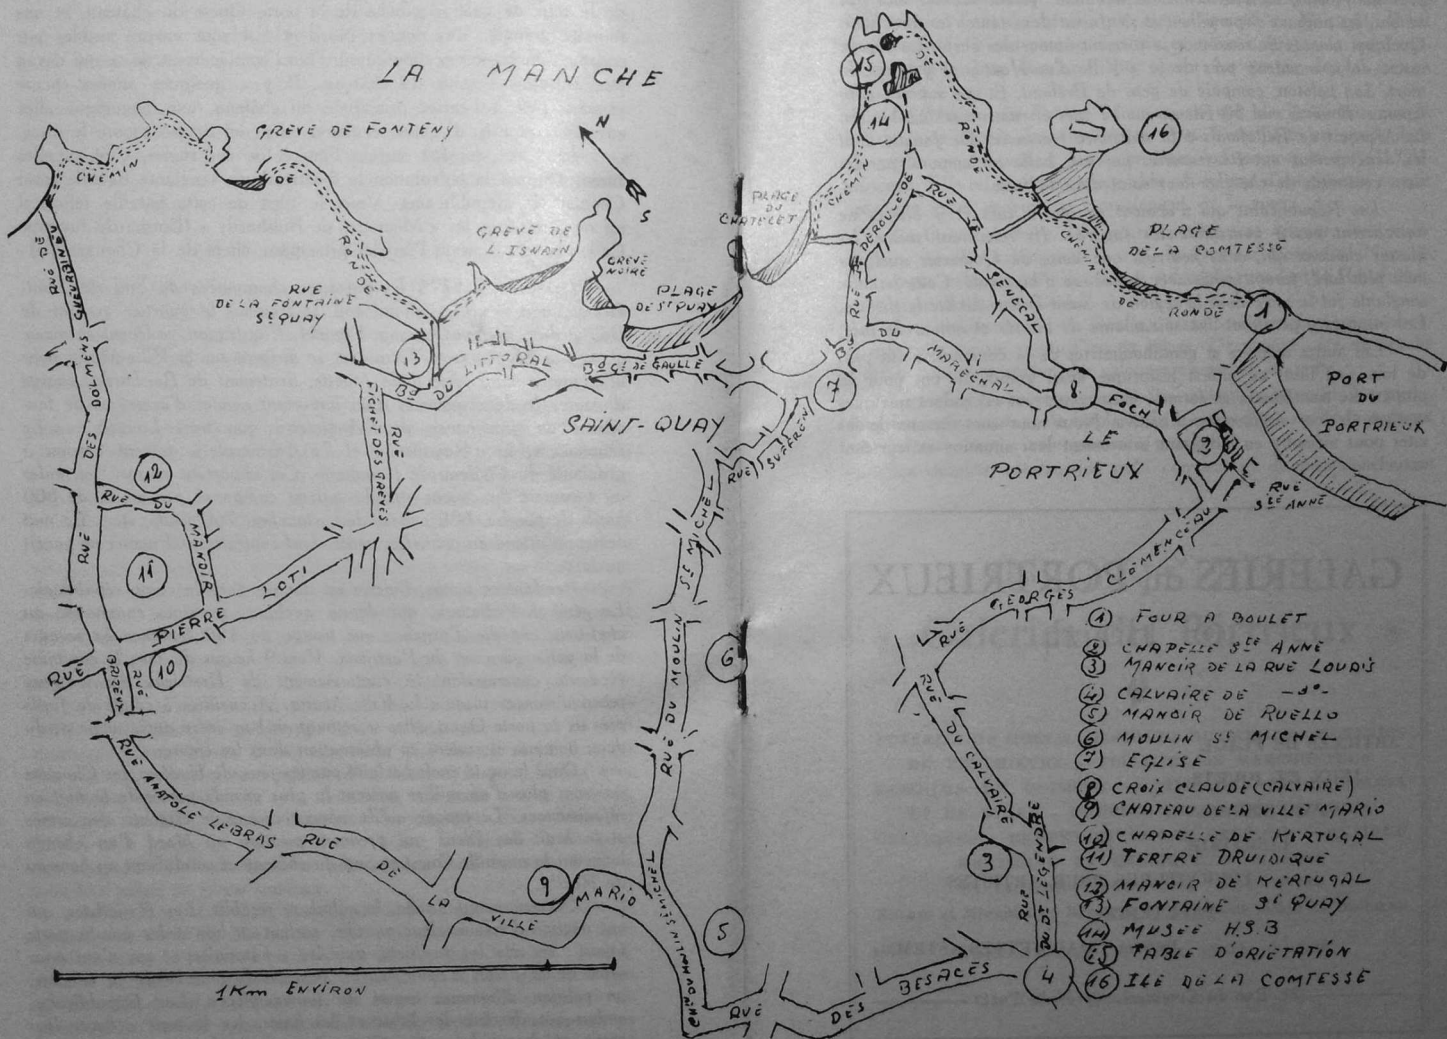 LA MANCHE
GREVE DE FONTENY
N
S
CHEMIN DE RONDE
GREVE DE
L. ISNAIN
GREVE
NOIRE
PLAGE
DE St QUAY
PLAGE
DU
CHATELET
CHEMIN DE RONDE
15
14
16
PLAGE
DE LA COMTESSE
CHEMIN DE RONDE
RUE DEROULEDE
RUE LE SÉNÉCAL
1
PORT
DU
PORTRIEUX
RUE
DE LA FONTAINE
St QUAY
13
Bd DU LITTORAL
Bd Gé DE GAULLE
7
Bd DU MARECHAL FOCH
8
2
RUE
Ste ANNE
SAINT-QUAY
LE
PORTRIEUX
RUE SUFFREN
RUE FICHET DES GREVES
RUE DES DOLMENS
12
RUE DU MANOIR
11
RUE PIERRE LOTI
10
RUE BRIZEUX
RUE ANATOLE LEBRAS
RUE DE LA VILLE MARIO
9
St MICHEL
RUE DU MOULIN
6
CHEMIN DU MOULIN St MICHEL
5
RUE DES BESACES
4
RUE DU Dr LEGENDRE
3
RUE DU CALVAIRE
RUE GEORGES CLÉMENCEAU
1 Km ENVIRON
1 FOUR A BOULET
2 CHAPELLE Ste ANNE
3 MANOIR DE LA RUE LOUAIS
4 CALVAIRE DE -d°-
5 MANOIR DE RUELLO
6 MOULIN St MICHEL
7 EGLISE
8 CROIX CLAUDE (CALVAIRE)
9 CHATEAU DE LA VILLE MARIO
10 CHAPELLE DE KERTUGAL
11 TERTRE DRUIDIQUE
12 MANOIR DE KERTUGAL
13 FONTAINE St QUAY
14 MUSEE H.S.B
15 TABLE D'ORIETATION
16 ILE DE LA COMTESSE